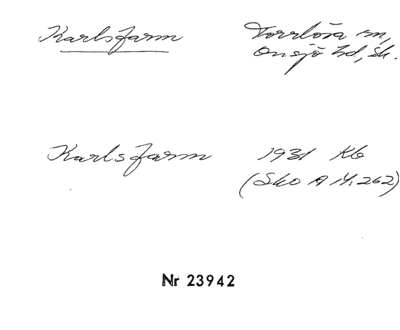 Karlsfarm Torrlösa sn,
Onsjö hd, Sk.
Karlsfarm 1931 Kb
(Sko A 14:262)
Nr 23942